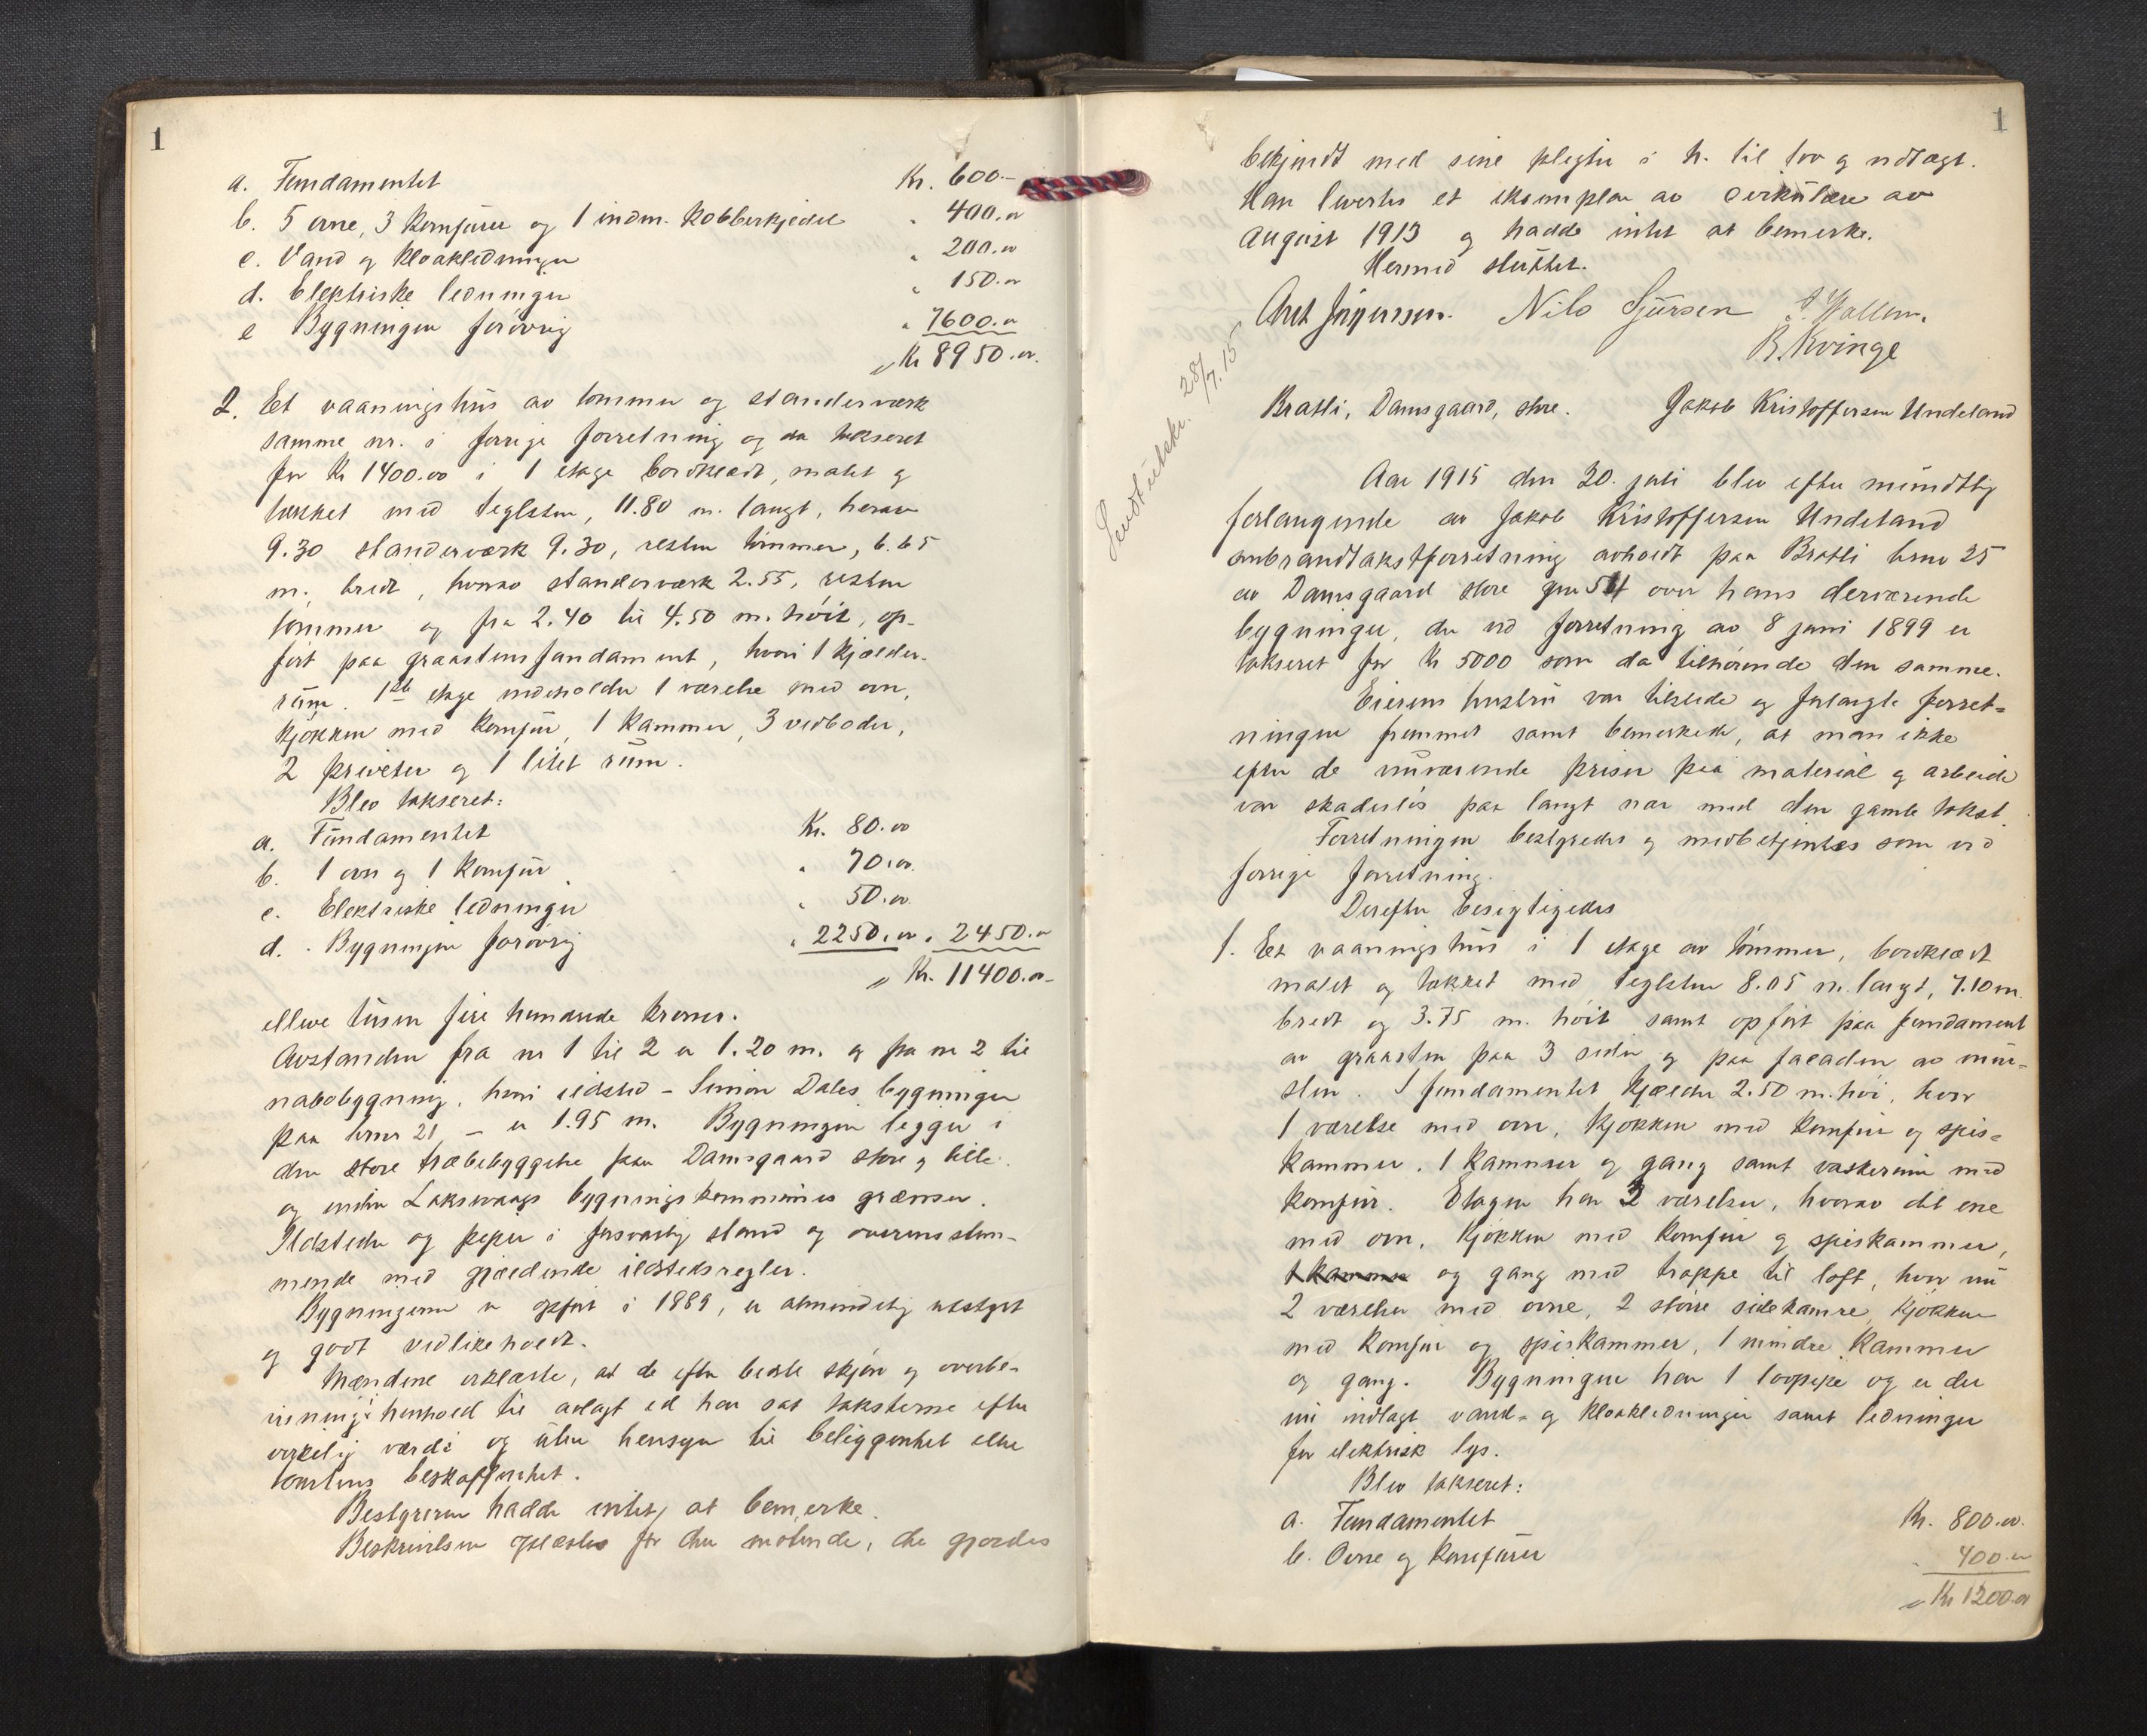 1
a. Fundamentet Kr. 600.-
b. 5 ovne, 3 komfurer og 1 indm. kobberkjedel " 400.00
c. Vand og kloakledninger " 200.00
d. Elektriske ledninger " 150.00
e Bygningen forøvrig " 7600.00
Kr 8950.00.
2. Et vaaningshus av tømmer og standerverk
samme nr. i forrige forretning og da takseret
for Kr 1400.00 i 1 etage bordklædt, malet og
tækket med teglsten, 11.80 m. langt, herav
9.30 standerværk 9.30, resten tømmer, 6.65
m. bredt, hvorav standerværk 2.55, resten
tømmer og fra 2.40 til 4.50 m. høit, op-
ført paa graastensfundament, hvori 1 kjælder-
rum. 1ste etage indeholder 1 værelse med ovn,
kjøkken med komfur, 1 kammer, 3 vedboder,
2 priveter og 1 litet rum.
Blev takseret:
a. Fundamentet Kr. 80.00
b. 1 ovn og 1 komfur " 70.00.
c. Elektriske ledninger " 50.00.
d. Bygningen forøvrig " 2250.00 " 2450.00
Kr. 11400.00
elleve tusen fire hundrede kroner.
Avstanden fra nr 1 til 2 er 1.20 m. og fra nr 2 til
nabobygning, hvori ildsted - Simon Dales bygninger
paa brnr 21 - er 1.95 m. Bygningen ligger i
den store træbebyggelse paa Damsgaard store og lille
og inden Laksevaags bygningskommunes grænser.
Ildsteder og piper i forsvarlig stand og overensstem-
mende med gjældende ildstedsregler.
Bygningerne er opført i 1889, er almindelig utstyrt
og godt vedlikeholdt.
Mændene erklærte, at de efter bedste skjøn og overbe-
visning i henhold til avlagt ed har sat taksterne efter
virkelig værdi og uten hensyn til beliggenhet eller
tomtens beskaffenhet.
Bestyreren hadde intet at bemerke.
Beskrivelsen oplæstes for den møtende, der gjordes
1
bekjendt med sine pligter i h. til lov og vedtægt.
Han leverdes et eksemplar av cirkulære av
august 1913 og hadde intet at bemerke.
Hermed sluttet.
Nils Sjursen
R. Kvinge
Sendt utskr. 28/7.15
Bratli, Damsgaard, store. Jakob Kristoffersen Undeland
Aar 1915 den 20. juli blev efter mundtlig
forlangende av Jakob Kristoffersen Undeland
ombrandtakstforretning avholdt paa Bratli brnr 25
av Damsgaard store gnr 51 over hans derværende
bygninger, der ved forretning av 8 juni 1899 er
takseret for Kr 5000 som da tilhørende den samme.
Eierens hustru var tilstede og forlangte forret-
ningen fremmet samt bemerkede, at man ikke
efter de nuværende priser paa material og arbeide
var skadesløs paa langt nær med den gamle takst
Forretningen bestyredes og medbetjentes som ved
forrige forretning.
Derefter besigtigedes
1. Et vaaningshus i 1 etage av tømmer, bordklædt
malet og tækket med teglsten 8.05 m. langt, 7.10 m.
bredt og 3.75 m. høit samt opført paa fundament
av graasten paa 3 sider og paa facaden av mur-
sten. I fundamentet kjælder 2.50 m. høi, hvor
1 værelse med ovn, kjøkken med komfur og spis-
kammer. 1 kammer og gang samt vaskerum med
komfur. Etagen har 2 værelser, hvorav det ene
med ovn, kjøkken med komfur og spiskammer,
1 kammer og gang med trappe til loft, hvor nu
2 værelser med ovne, 2 større sidekamre, kjøkken
med komfur og spiskammer, 1 mindre kammer
og gang. Bygningen har 1 løvpipe og er der
nu indlagt vand- og kloakledninger samt ledninger
for elektrisk lys.
Blev takseret:
a. Fundamentet Kr. 800.00.
b. Ovne og komfurer " 400.00
Kr 1200.00